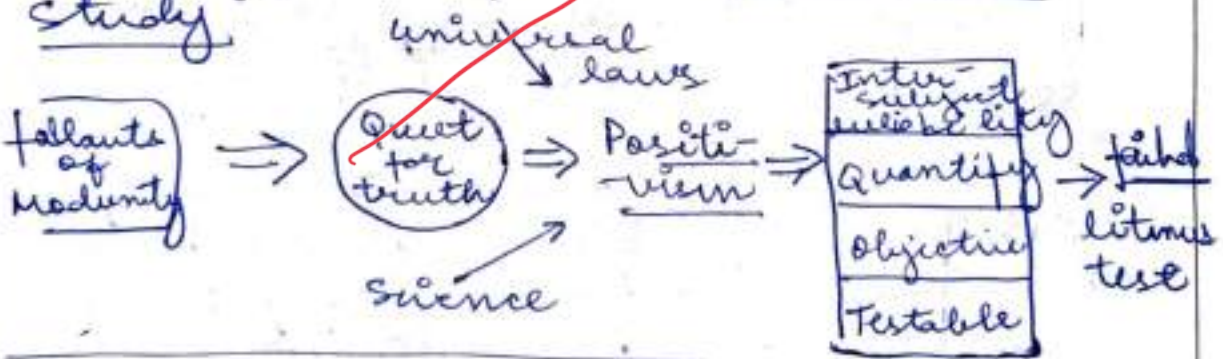 Study
universal
laws
fallouts
of
Modernity
Quest
for
truth
Positi-
-vism
Science
Inter-
subject
reliability
Quantify
Objective
Testable
failed
litmus
test